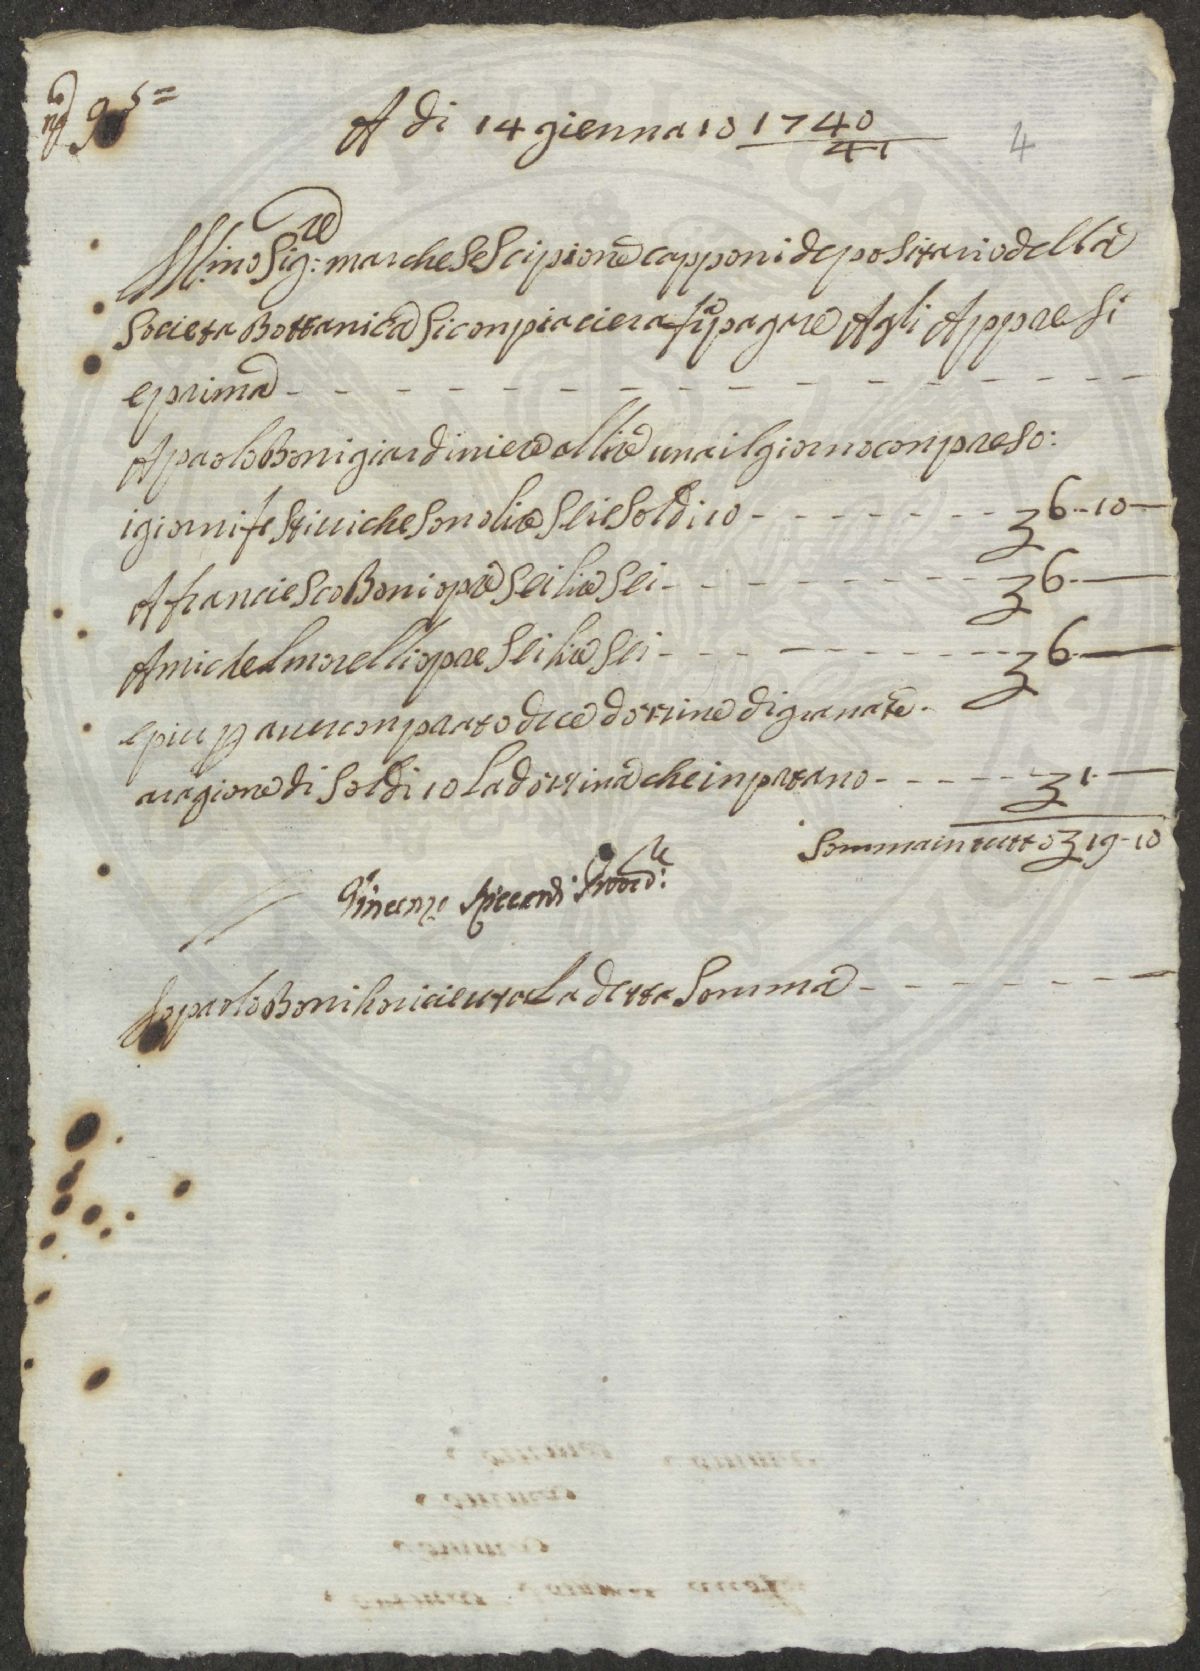 A di 14 giennaio 1740
41
4
Ill.mo Sig:re marchese Scipione capponi depositario della
Societa Bottanica Si conpiaciera far pagare Agli Appresi
e prima
A paolo Boni giardiniere a llire una il giorno conpreso:
i giorni festiui che sono lire Sei e Soldi 10 6 - 10
A franciesco Boni opre Sei lire Sei 6
A michel morelli opre Sei lire Sei 6
e piu p auer conprato dua dozzine di granate
a ragione di Soldi 10 la dozzina che inportano 1
Somma in tutto 19 - 10
Vincenzo Riccardi Provd:re
Io paolo Boni ho riceuto La detta Somma